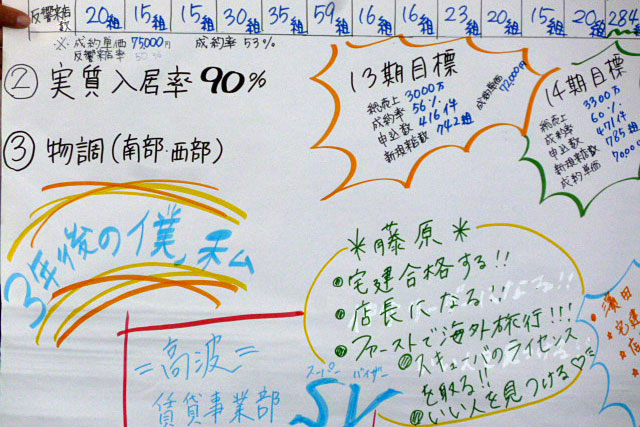 反響来店数 20組 15組 15組 30組 35組 59組 16組 16組 23組 20組 15組 20組 284組
※成約単価 75000円 成約率 53%
反響来店率 50%
② 実質入居率 90%
③ 物調(南部・西部)
13期目標
総売上 3000万
成約率 56%
申込数 416件
新規来店数 742組
成約単価 72000円
14期目標
総売上 3300万
成約率 60%
申込数 471件
新規来店数 785組
成約単価 7000
3年後の僕、私
*藤原*
宅建合格する!!
店長になる!!
ファーストで海外旅行!!!
スキューバのライセンスを取る!!
いい人を見つける♡
=高波=
賃貸事業部
スーパー バイザー
SV
濱田
宅建
店